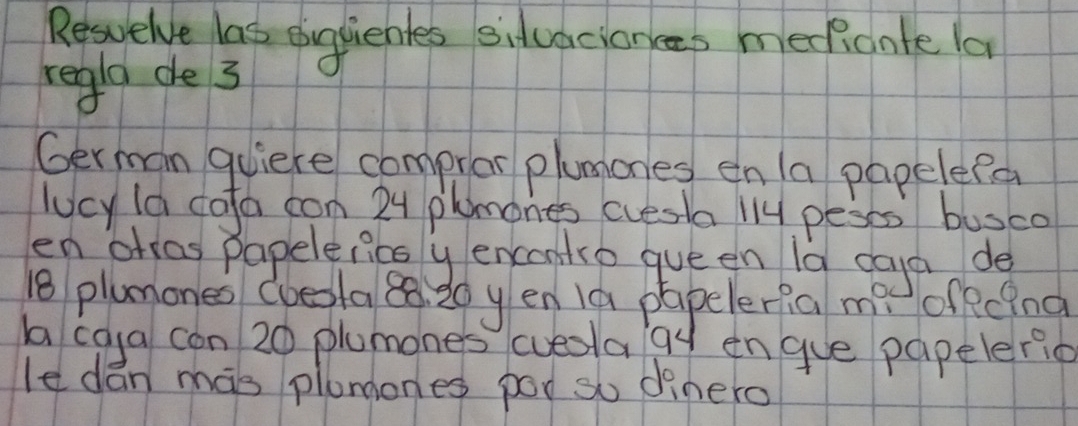 Resuelve las siguientes situaciones mediante la
regla de 3
German quiere comprar plumones en la papeleria
lucy la caja con 24 plumones cuesta 114 pesos busco
en otras papelerias y encontro que en la caja de
18 plumones cuesta 88.20 y en la papeleria mi oficina
la caja con 20 plumones cuesta 94 en que papeleria
le dan más plumones por su dinero